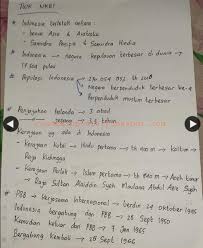 TWK NKRI
* Indonesia terletak antara :
- benua Asia & Australia
- Samudra Pasifik & Samudra Hindia
* Indonesia → negara kepulauan terbesar di dunia →
17.504 pulau
* Populasi Indonesia
Negara berpenduduk terbesar ke 4
Berpenduduk muslim terbesar
* Penjajahan Belanda → 3 abad
Jepang → 3,5 tahun
* Kerajaan yg ada di Indonesia
- Kerajaan Kutai → Hindu pertama → th 400 M → Kaltim →
Raja Kudungga
- Kerajaan Perlak → Islam pertama → th 840 M → Aceh timur
→ Raja Sultan Alaiddin Syah Maulana Abdul Aziz Syah
* PBB → Kerjasama Internasional → berdiri 24 Oktober 1945
Indonesia bergabung dgn PBB → 28 Sept 1950
Indonesia keluar dari PBB → 7 Jan 1965
Bergabung kembali → 28 Sept 1966